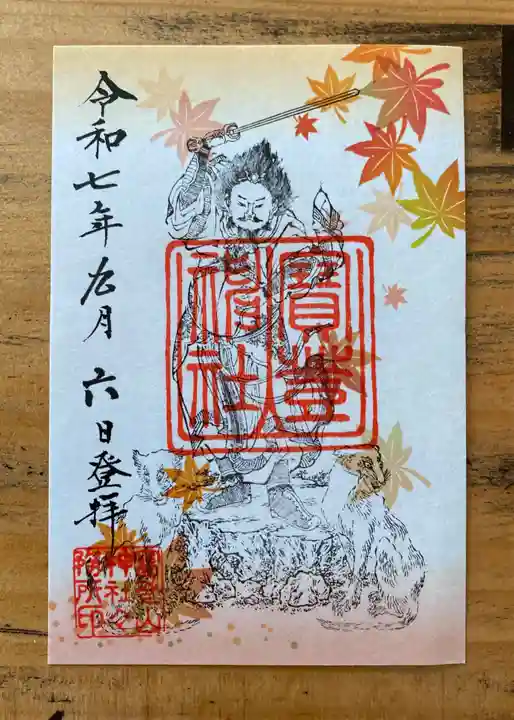 令和七年九月六日登拝
寶登山
神社
寶登山
神社
務所印